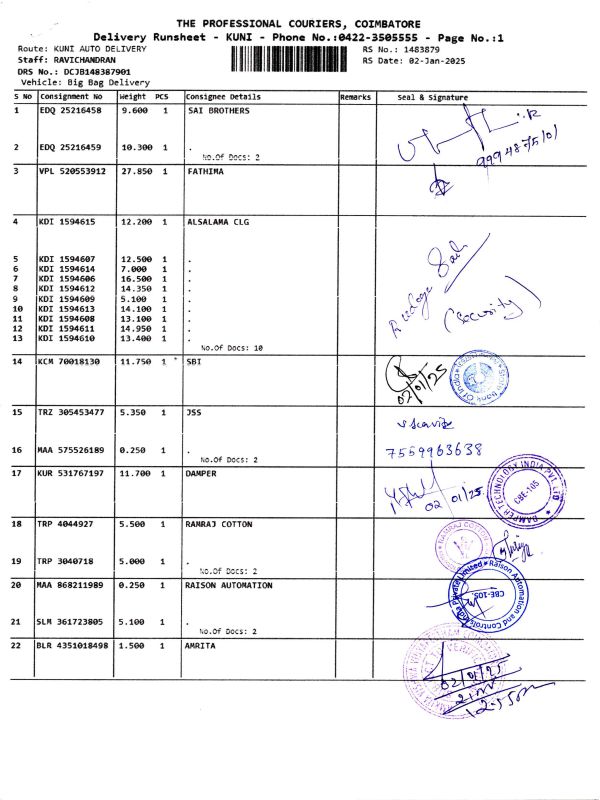 THE PROFESSIONAL COURIERS, COIMBATORE
Delivery Runsheet - KUNI - Phone No.:0422-3505555 - Page No.:1
Route: KUNI AUTO DELIVERY
RS No.: 1483879
Staff: RAVICHANDRAN
RS Date: 02-Jan-2025
DRS No.: DCJB148387901
Vehicle: Big Bag Delivery
S No Consignment No Weight PCS Consignee Details Remarks Seal & Signature
1 EDQ 25216458 9.600 1 SAI BROTHERS
2 EDQ 25216459 10.300 1 .
No.Of Docs: 2
3 VPL 520553912 27.850 1 FATHIMA
4 KDI 1594615 12.200 1 ALSALAMA CLG
5 KDI 1594607 12.500 1 .
6 KDI 1594614 7.000 1 .
7 KDI 1594606 16.500 1 .
8 KDI 1594612 14.350 1 .
9 KDI 1594609 5.100 1 .
10 KDI 1594613 14.100 1 .
11 KDI 1594608 13.100 1 .
12 KDI 1594611 14.950 1 .
13 KDI 1594610 13.400 1 .
(Security)
No.Of Docs: 10
14 KCM 70018130 11.750 1 SBI
02/01/25
State Bank Of India
15 TRZ 305453477 5.350 1 JSS
16 MAA 575526189 0.250 1 .
7559963638
No.Of Docs: 2
17 KUR 531767197 11.700 1 DAMPER
02/01/25
DAMPER TECHNOLOGY INDIA PVT. LTD
CBE-105
18 TRP 4044927 5.500 1 RAMRAJ COTTON
RAMRAJ COTTON
19 TRP 3040718 5.000 1 .
No.Of Docs: 2
20 MAA 868211989 0.250 1 RAISON AUTOMATION
Raison Automation and Controls India Private Limited
CBE-105.
21 SLM 361723805 5.100 1 .
No.Of Docs: 2
22 BLR 4351018498 1.500 1 AMRITA
02/01/25
12.55pm